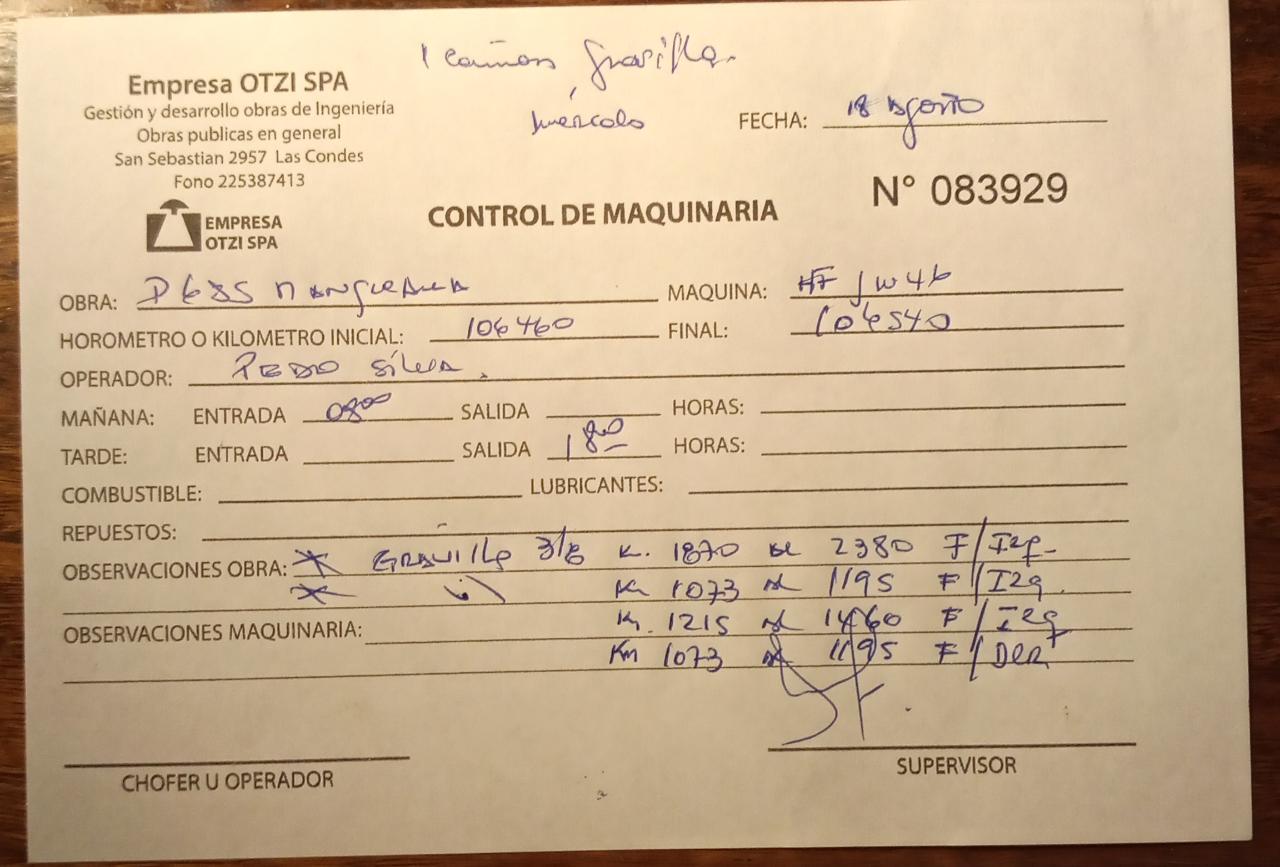 1 Camion Gravilla.
Empresa OTZI SPA
Gestión y desarrollo obras de Ingeniería
Obras publicas en general
San Sebastian 2957 Las Condes
Fono 225387413
FECHA: 18 Agosto
N° 083929
EMPRESA
OTZI SPA
CONTROL DE MAQUINARIA
OBRA: D685
MAQUINA: JW46
HOROMETRO O KILOMETRO INICIAL: 106460 FINAL: 106540
OPERADOR: PEDRO Silva.
MAÑANA: ENTRADA 0800 SALIDA HORAS:
TARDE: ENTRADA SALIDA 1800 HORAS:
COMBUSTIBLE: LUBRICANTES:
REPUESTOS:
OBSERVACIONES OBRA: GRAVILLA 3/8 K. 1870 AL 2380 F/Izq.
Km 1073 AL 1195 F/Izq.
OBSERVACIONES MAQUINARIA: Km. 1215 AL 1460 F/Izq
Km 1073 AL 1195 F/Der
CHOFER U OPERADOR
SUPERVISOR